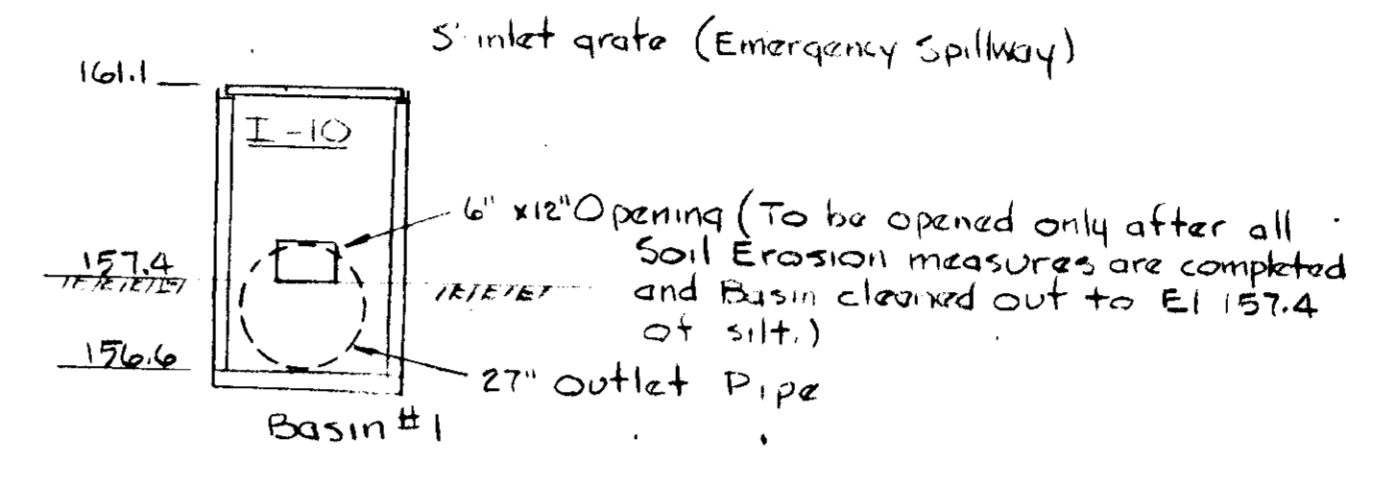 5' inlet grate (Emergency Spillway)
161.1
I-10
6" x12" Opening (To be opened only after all
Soil Erosion measures are completed
and Basin cleaned out to El 157.4
of silt.)
157.4
156.6
27" Outlet Pipe
Basin #1